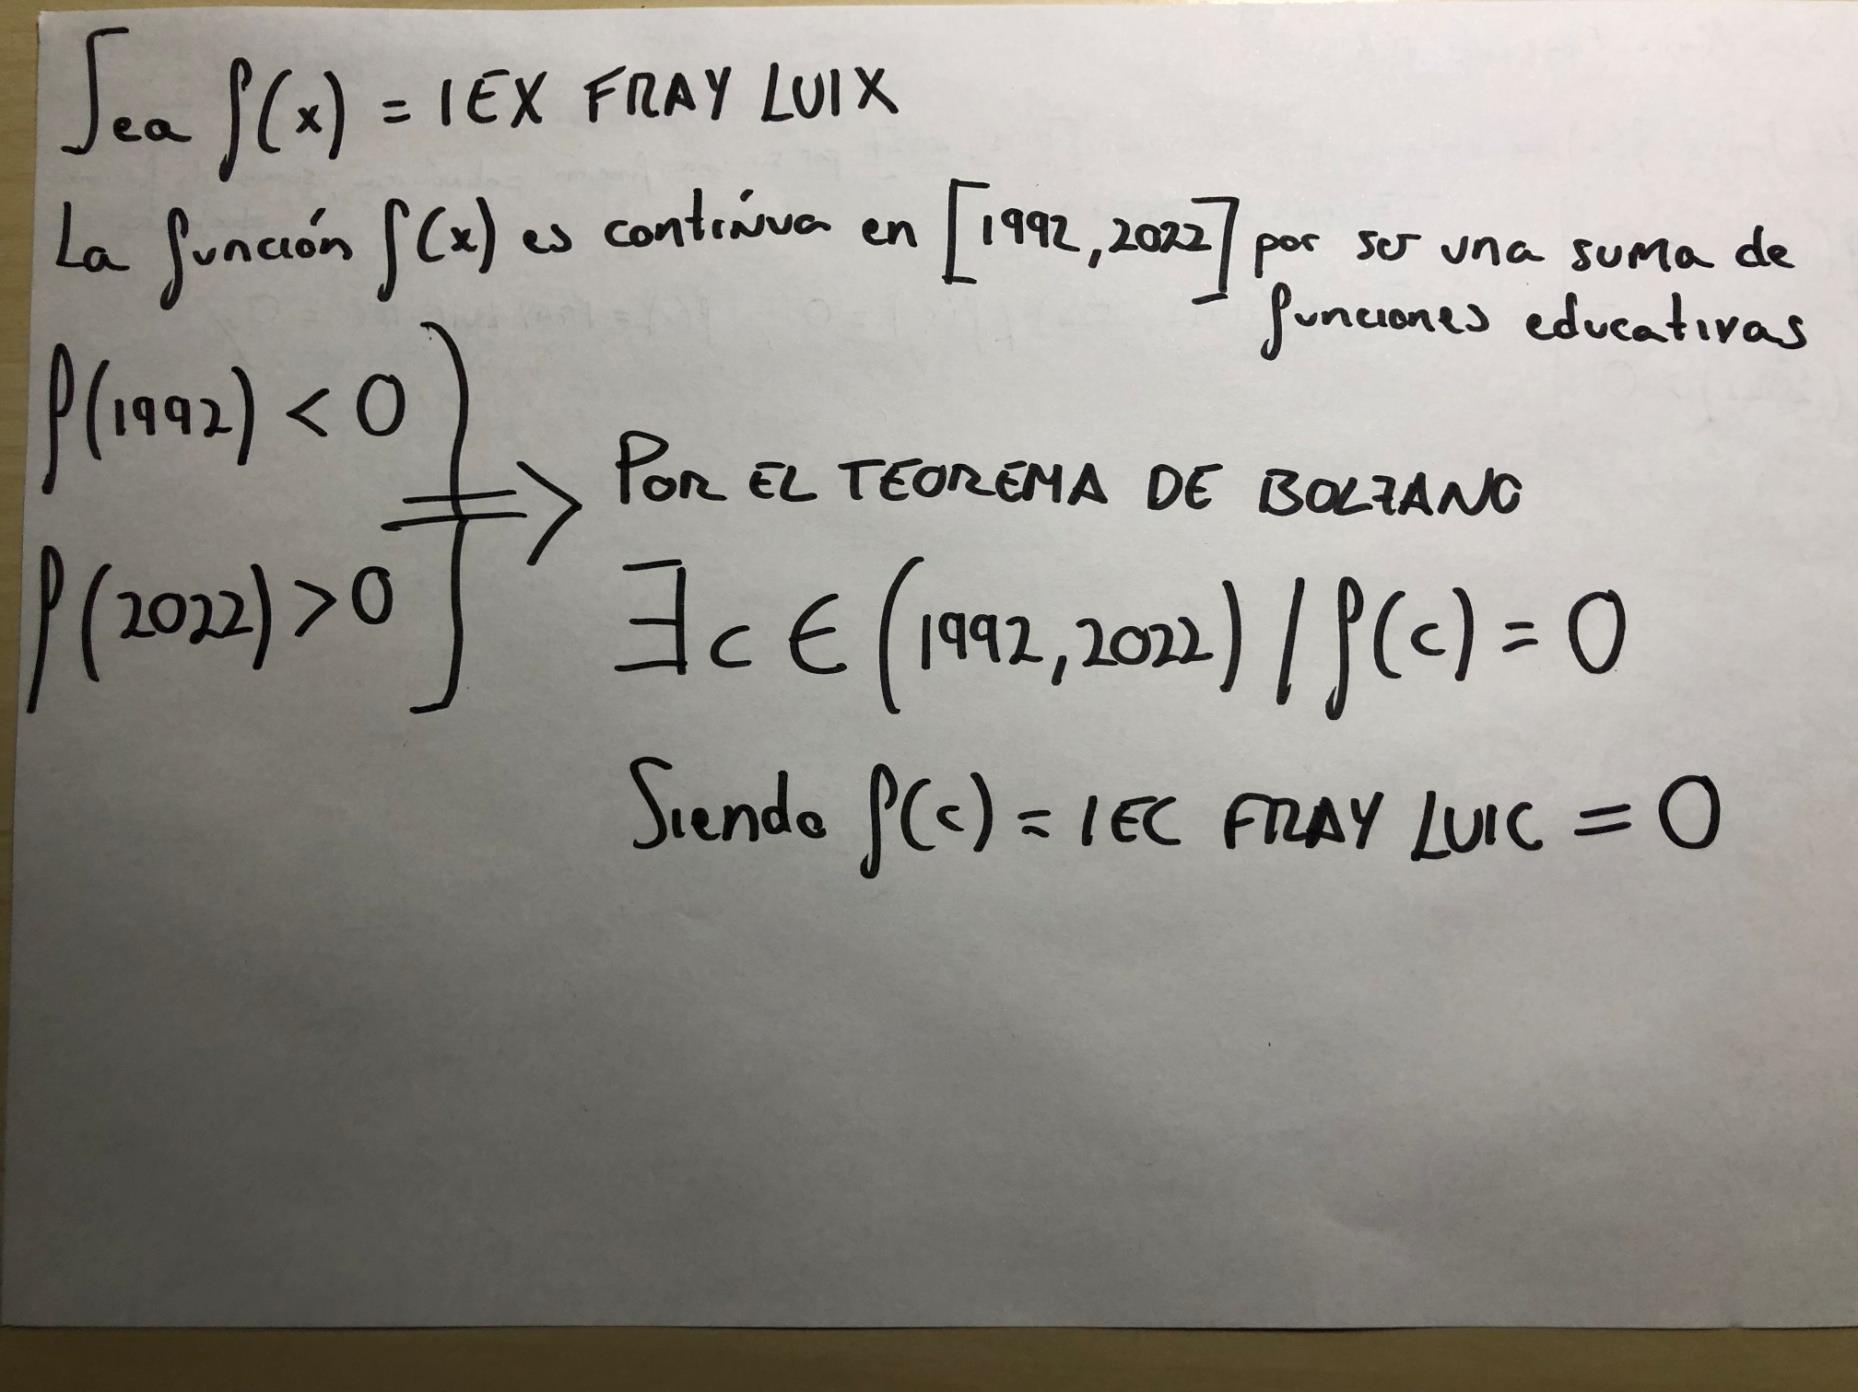 Sea f(x) = IEX FRAY LUIX
La función f(x) es contínua en [1992, 2022] por ser una suma de
funciones educativas
f(1992) < 0
f(2022) > 0
⇒ POR EL TEOREMA DE BOLZANO
∃ c ∈ (1992, 2022) / f(c) = 0
Siendo f(c) = IEC FRAY LUIC = 0